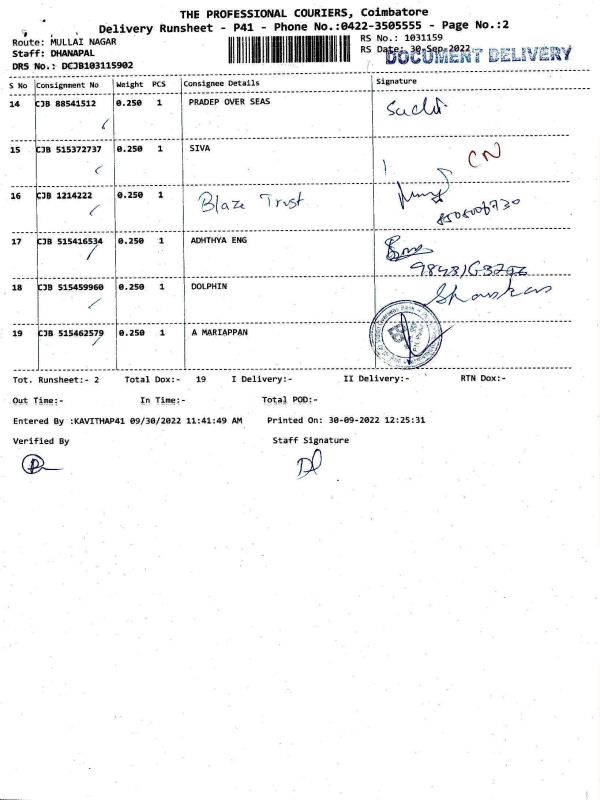 THE PROFESSIONAL COURIERS, Coimbatore
Delivery Runsheet - P41 - Phone No.:0422-3505555 - Page No.:2
Route: MULLAI NAGAR RS No.: 1031159
Staff: DHANAPAL RS Date: 30-Sep-2022
DOCUMENT DELIVERY
DRS No.: DCJB103115902
S No Consignment No Weight PCS Consignee Details Signature
14 CJB 88541512 0.250 1 PRADEP OVER SEAS
15 CJB 515372737 0.250 1 SIVA CN
16 CJB 1214222 0.250 1 Blaze Trust
17 CJB 515416534 0.250 1 ADHTHYA ENG
18 CJB 515459960 0.250 1 DOLPHIN
19 CJB 515462579 0.250 1 A MARIAPPAN
Tot. Runsheet:- 2 Total Dox:- 19 I Delivery:- II Delivery:- RTN Dox:-
Out Time:- In Time:- Total POD:-
Entered By :KAVITHAP41 09/30/2022 11:41:49 AM Printed On: 30-09-2022 12:25:31
Verified By Staff Signature